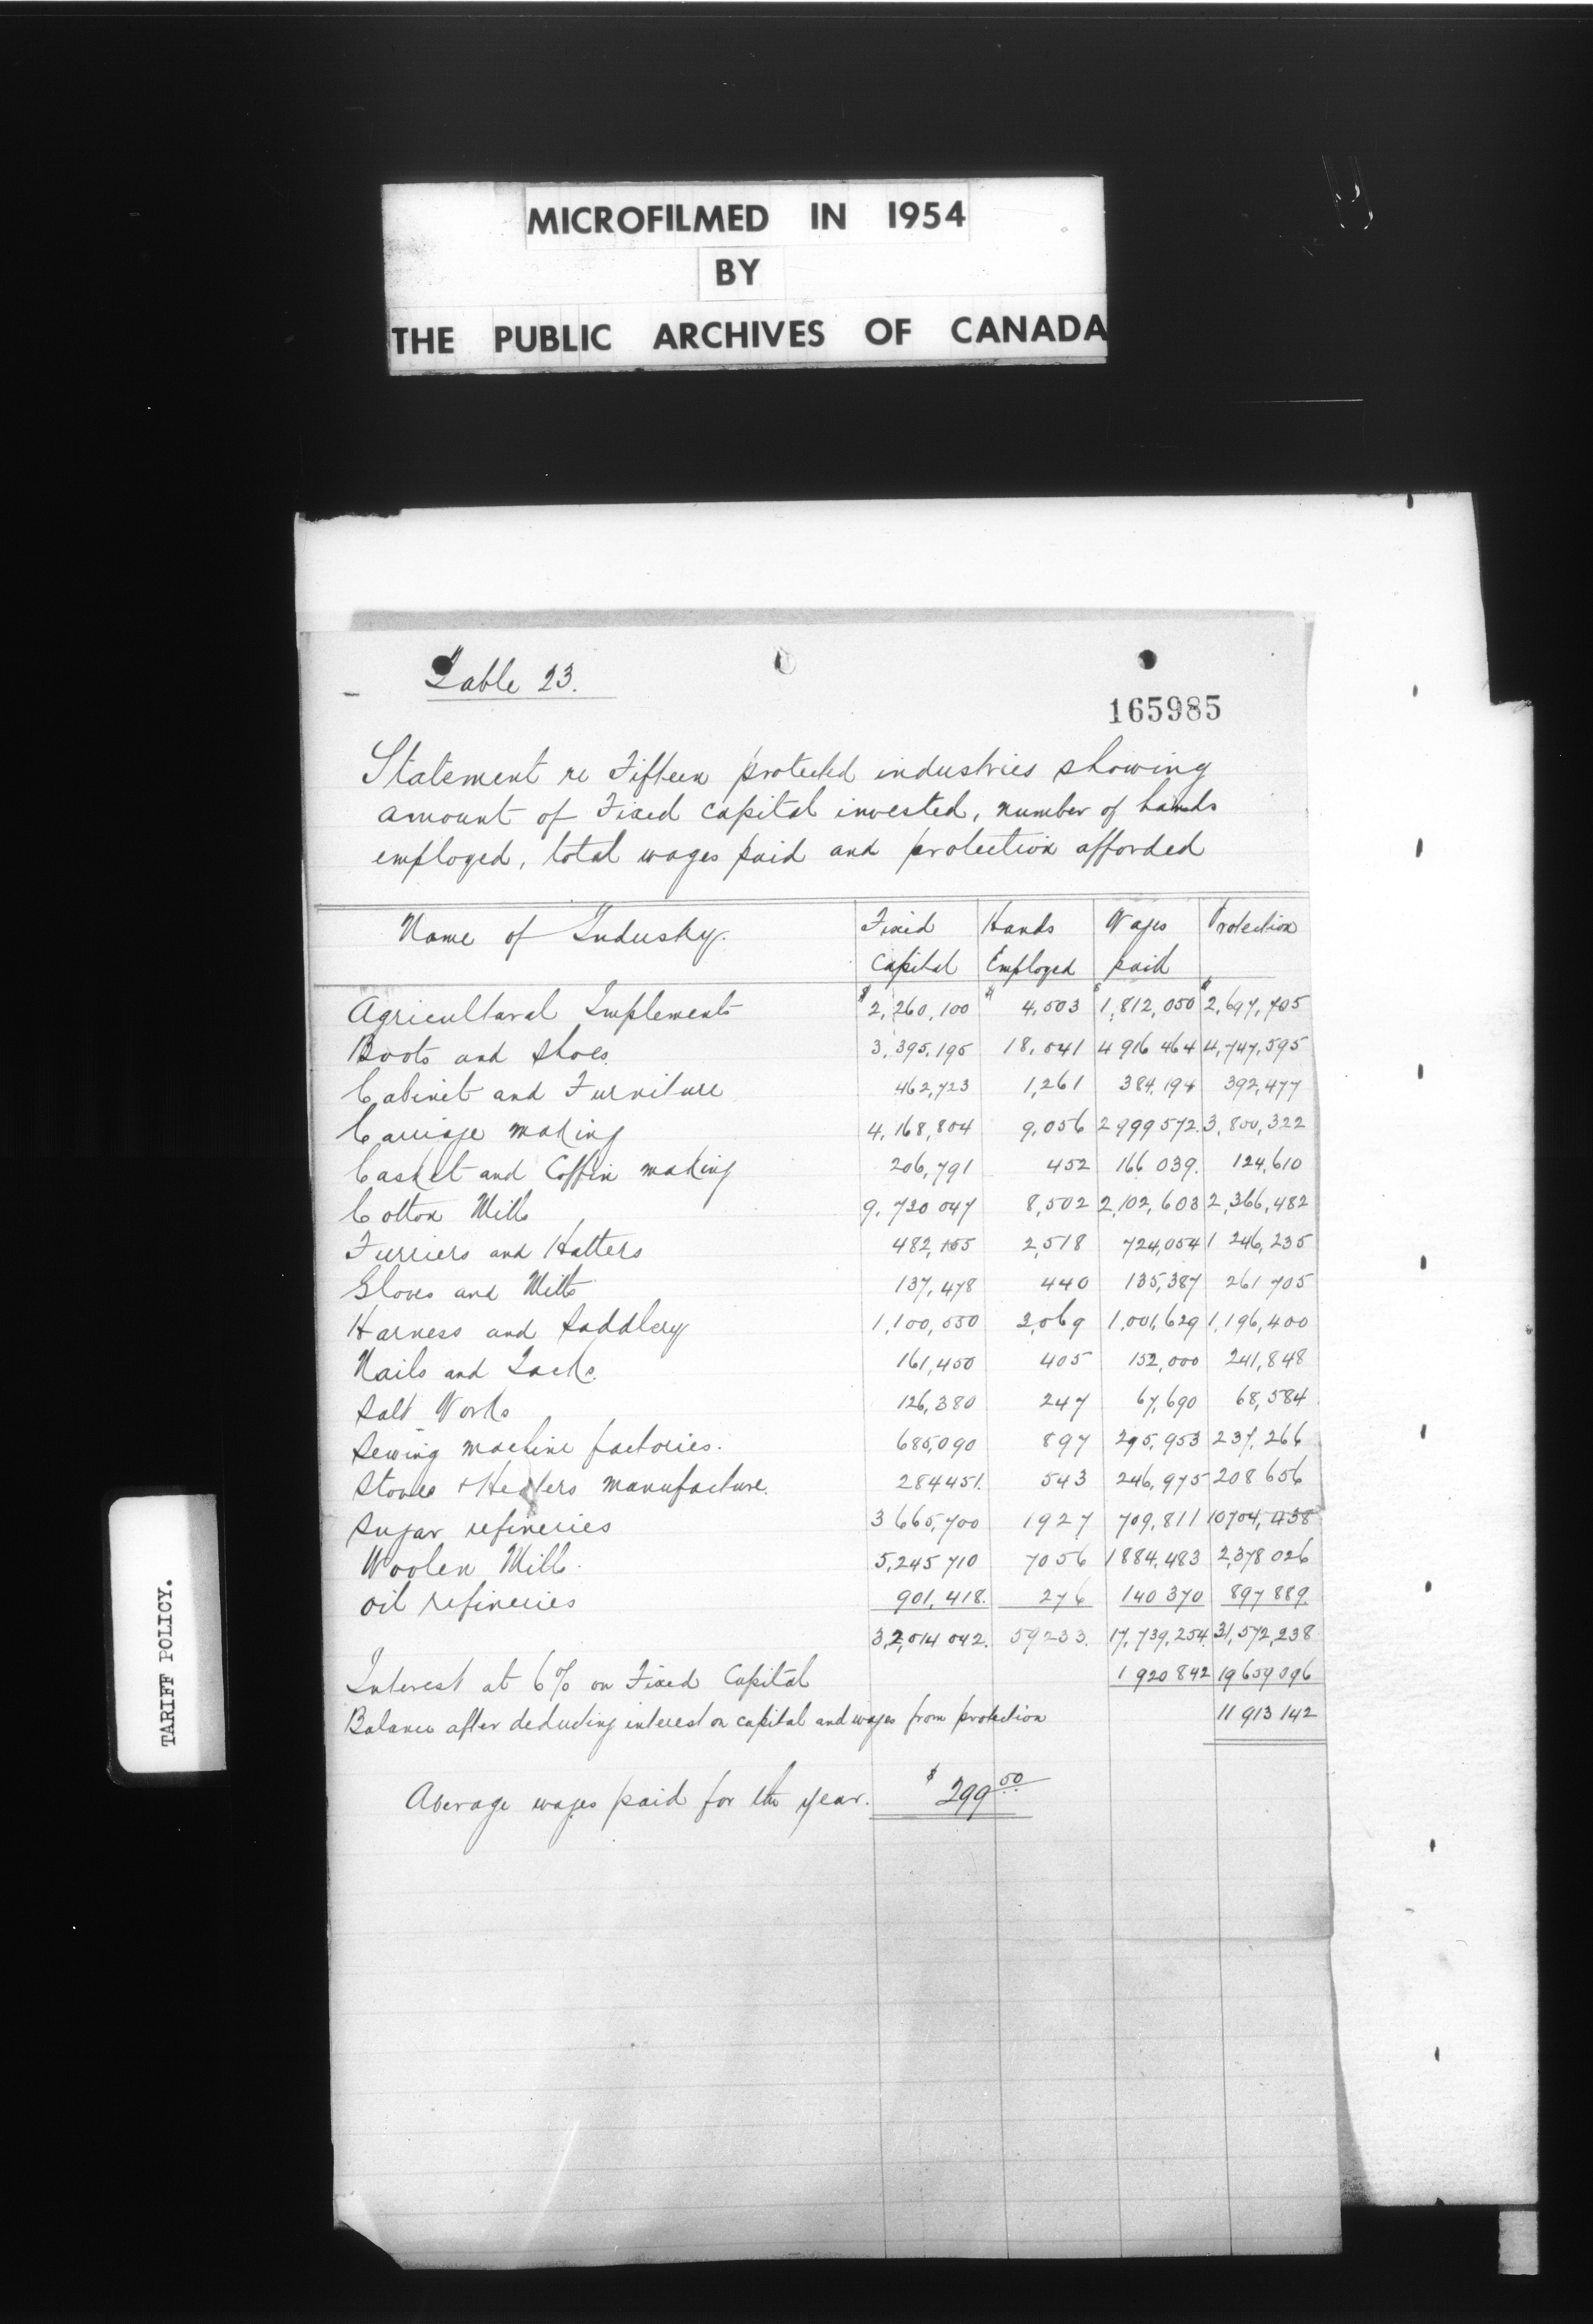 MICROFILMED IN 1954
BY
THE PUBLIC ARCHIVES OF CANADA
Table 23.
165985
Statement re Fifteen protected industries showing
amount of Fixed capital invested, number of hands
employed, total wages paid and protection afforded
Name of Industry. Fixed Capital Hands Employed Wages paid Protection
Agricultural Implements $2,260,100 4,503 $1,812,050 $2,697,705
Boots and Shoes. 3,395,195 18,041 4 916 464 4,747,595
Cabinet and Furniture 462,723 1,261 384,194 392,477
Carriage making 4,168,804 9,056 2 999 572. 3,800,322
Casket and Coffin making 206,791 452 166 039. 124,610
Cotton Mills 9,720 047 8,502 2,102,603 2,366,482
Furriers and Hatters 482,155 2,518 724,054 1 246,235
Gloves and Mitts 137,478 440 135,387 261 705
Harness and Saddlery 1,100,550 2,069 1,001,629 1,196,400
Nails and Tacks. 161,450 405 152,000 241,848
Salt Works 126,380 247 67,690 68,584
Sewing machine factories. 685,090 897 295,953 237,266
Stoves & Heaters manufacture. 284451. 543 246,975 208 656
Sugar refineries 3 665,700 1927 709,811 10704,438
Woolen Mills. 5,245 710 7056 1884,483 2,378 026
Oil refineries 901,418. 276 140 370 897 889.
32,014 042. 59233. 17,739,254. 31,572,238
Interest at 6% on Fixed Capital 1 920 842 19 659 096
Balance after deducting interest on capital and wages from protection 11 913 142
Average wages paid for the year. $ 299 50
TARIFF POLICY.